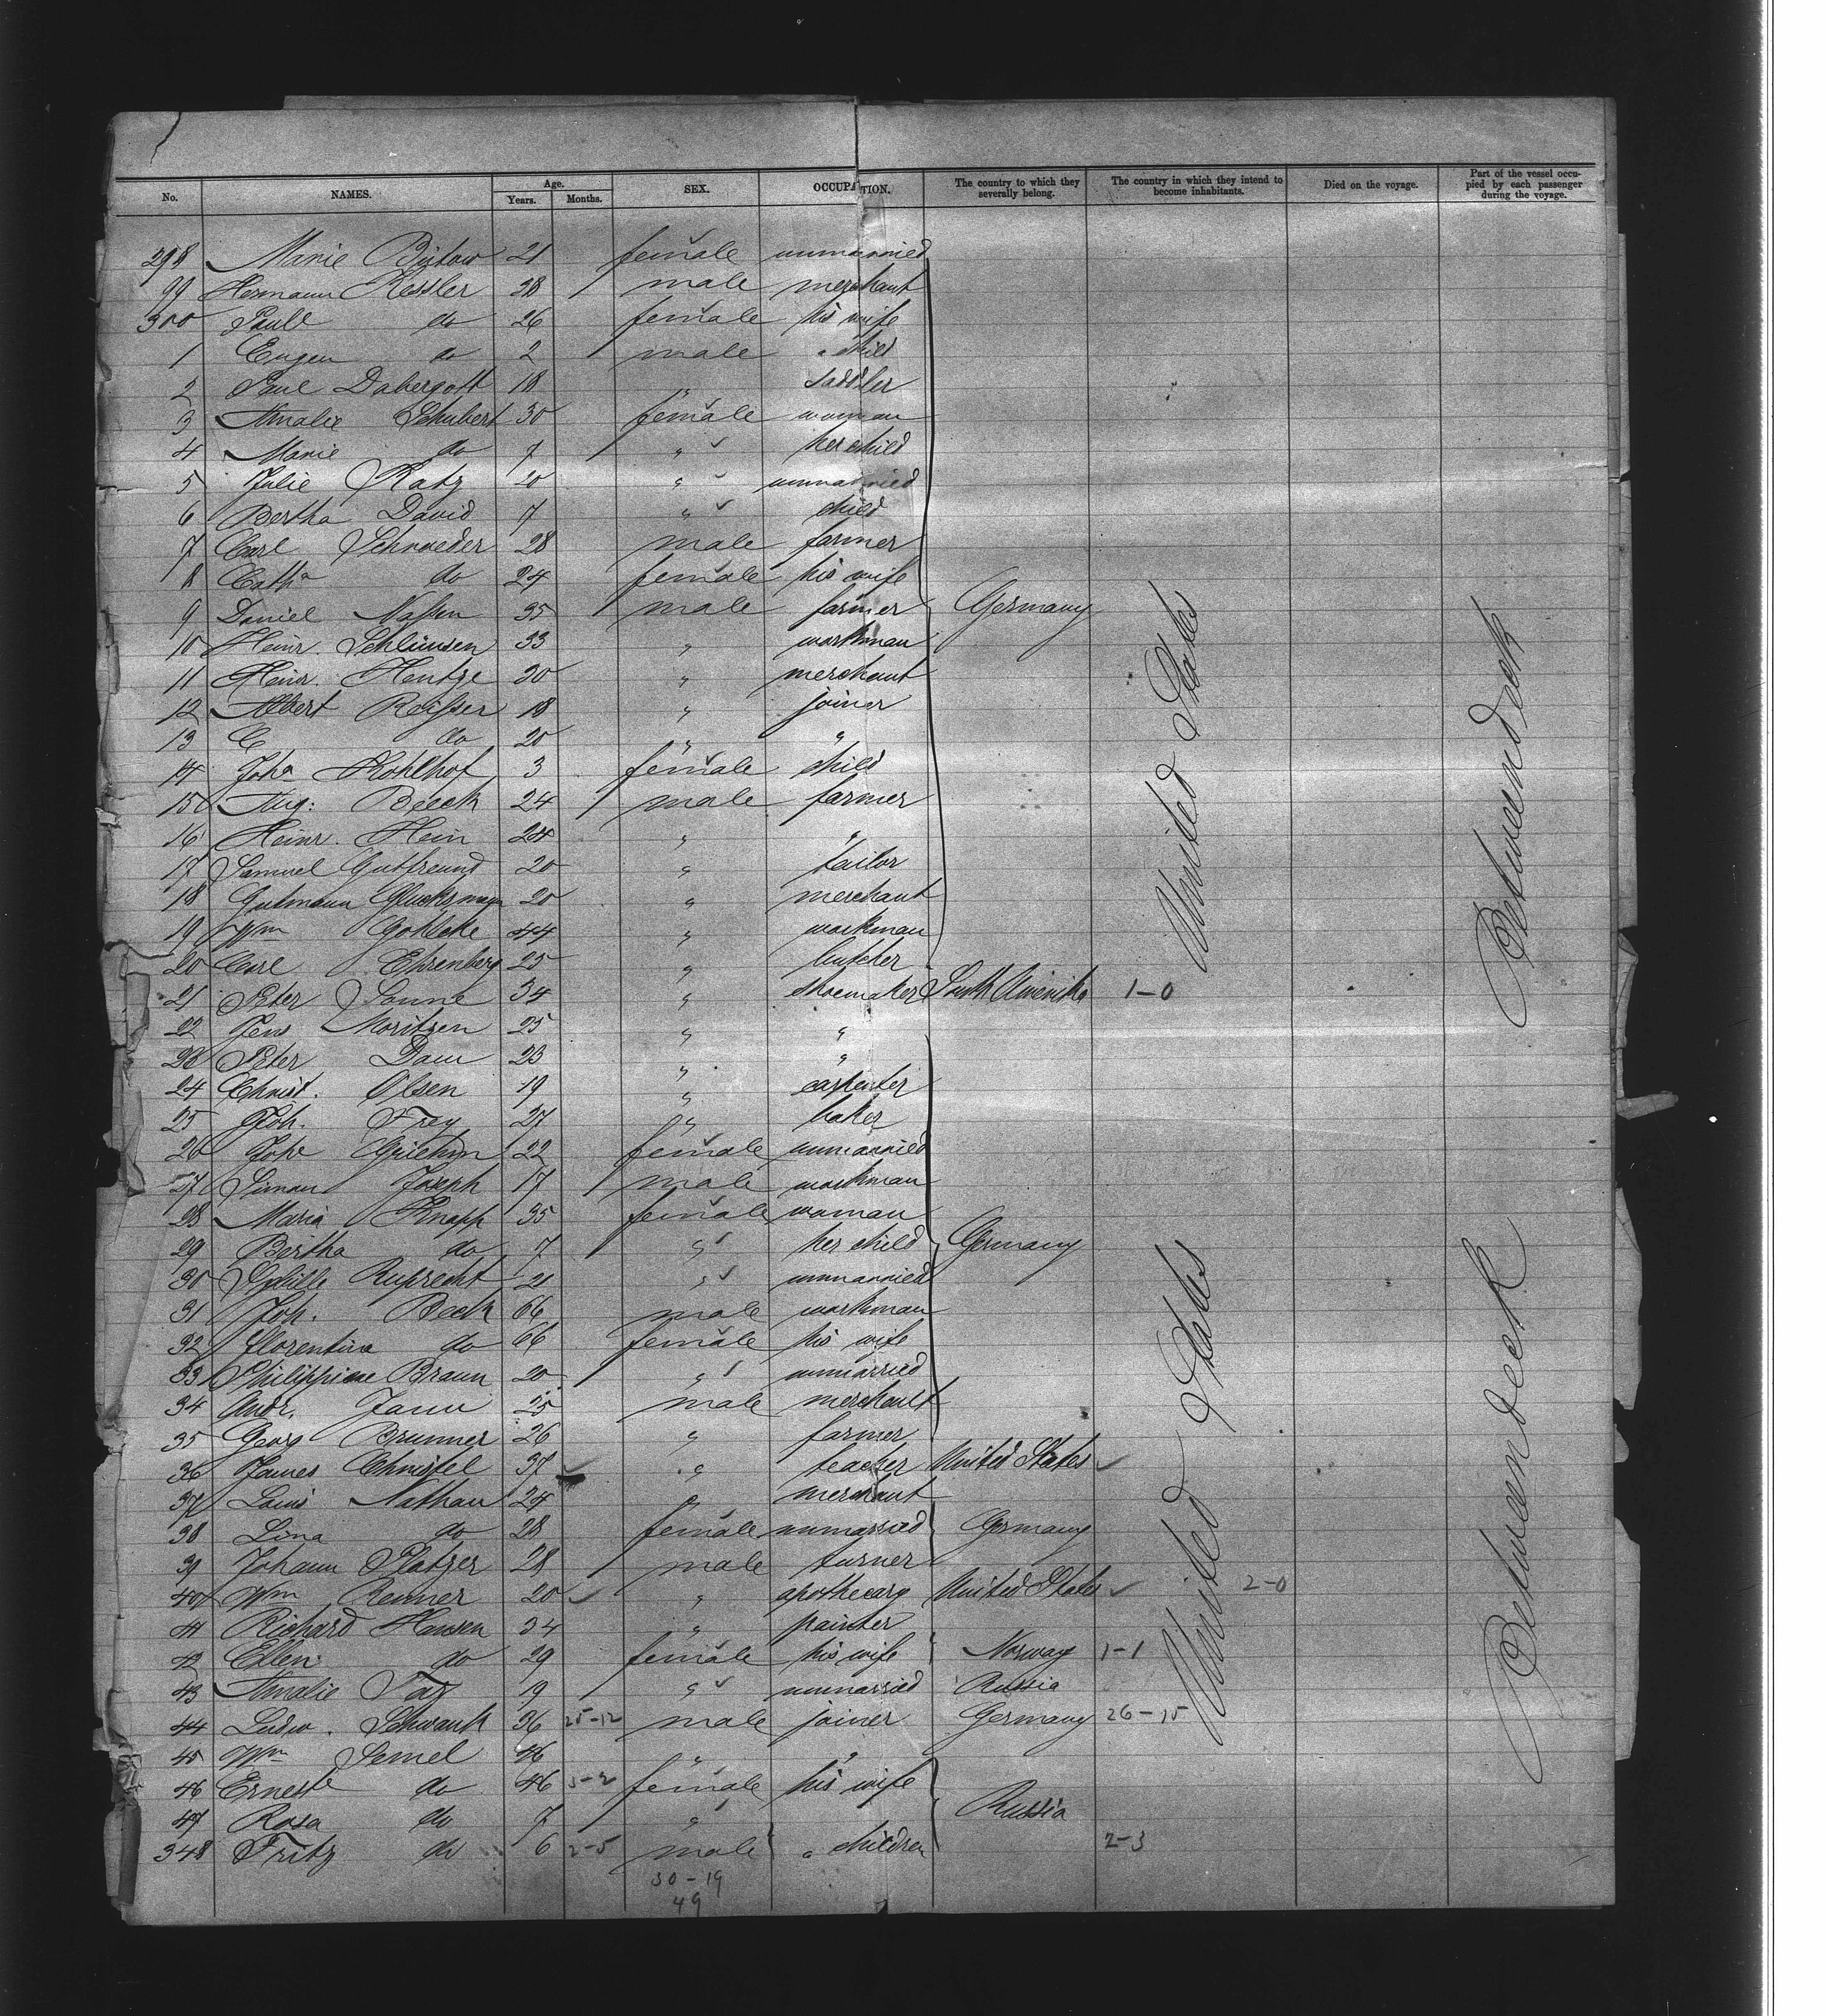 No. NAMES. Age. Years. Months. SEX. OCCUPATION. The country to which they severally belong. The country in which they intend to become inhabitants. Died on the voyage. Part of the vessel occupied by each passenger during the voyage.
298 Marie 21 female unmarried
99 Hermann Kessler 28 male merchant
300 Paull do 26 female his wife
1 Eugen do 2 male " child
2 Paul Dabergott 18 " saddler
3 Amalie Schubert 30 female woman
4 Marie do 7 " her child
5 Julie Katz 20 " unmarried
6 Bertha David 7 " child
7 Carl Schroeder 28 male farmer
8 Catha do 24 female his wife
9 Daniel 35 male farmer Germany
10 Heinr. Schlünsen 33 " workman
11 Heinr. Hentze 30 " merchant
12 Albert Reisser 18 " joiner
13 C do 20 " "
14 Joha Kohlhof 3 female child
15 Aug: Beeck 24 male farmer
16 Heinr. Hein 24 " "
17 Samuel Gutfreund 20 " tailor
18 Gutmann Glucksmann 20 " merchant
19 Wm Gohlcke 44 " workman
20 Carl Ehrenberg 25 " butcher
21 Peter Sonne 34 " shoemaker South Amerika 1-0
22 Jens Moritzen 25 " "
23 Peter Dam 23 " "
24 Christ. Olsen 19 " carpenter
25 Joh. Frey 27 " baker
26 22 female unmarried
27 Simon Joseph 17 male workman
28 Maria Knapp 35 female woman
29 Bertha do 7 " her child Germany
30 Ruprecht 21 " unmarried
31 Joh. Beck 66 male workman
32 Florentine do 66 female his wife
33 Philippine Braun 20 " unmarried
34 Andr. Jann 25 male merchant
35 Georg Brunner 26 " farmer
36 James Christel 37 " teacher United States
37 Louis Nathan 24 " merchant
38 Lina do 28 female unmarried Germany
39 Johann Platzer 28 male turner
40 Wm Renner 20 " apothecary United States 2-0
41 Richard Hansen 34 " painter
42 Ellen do 29 female his wife Norway 1-1
43 Amalie 19 " unmarried Russia
44 Ludw. Schwank 36 25-12 male joiner Germany 26-15
45 Wm Semel 46 " "
46 Ernest do 46 3-2 female his wife
47 Rosa do 7 " Russia
348 Fritz do 6 2-5 male " children 2-3
30-19
49
United States
United States
Betweendeck
Betweendeck